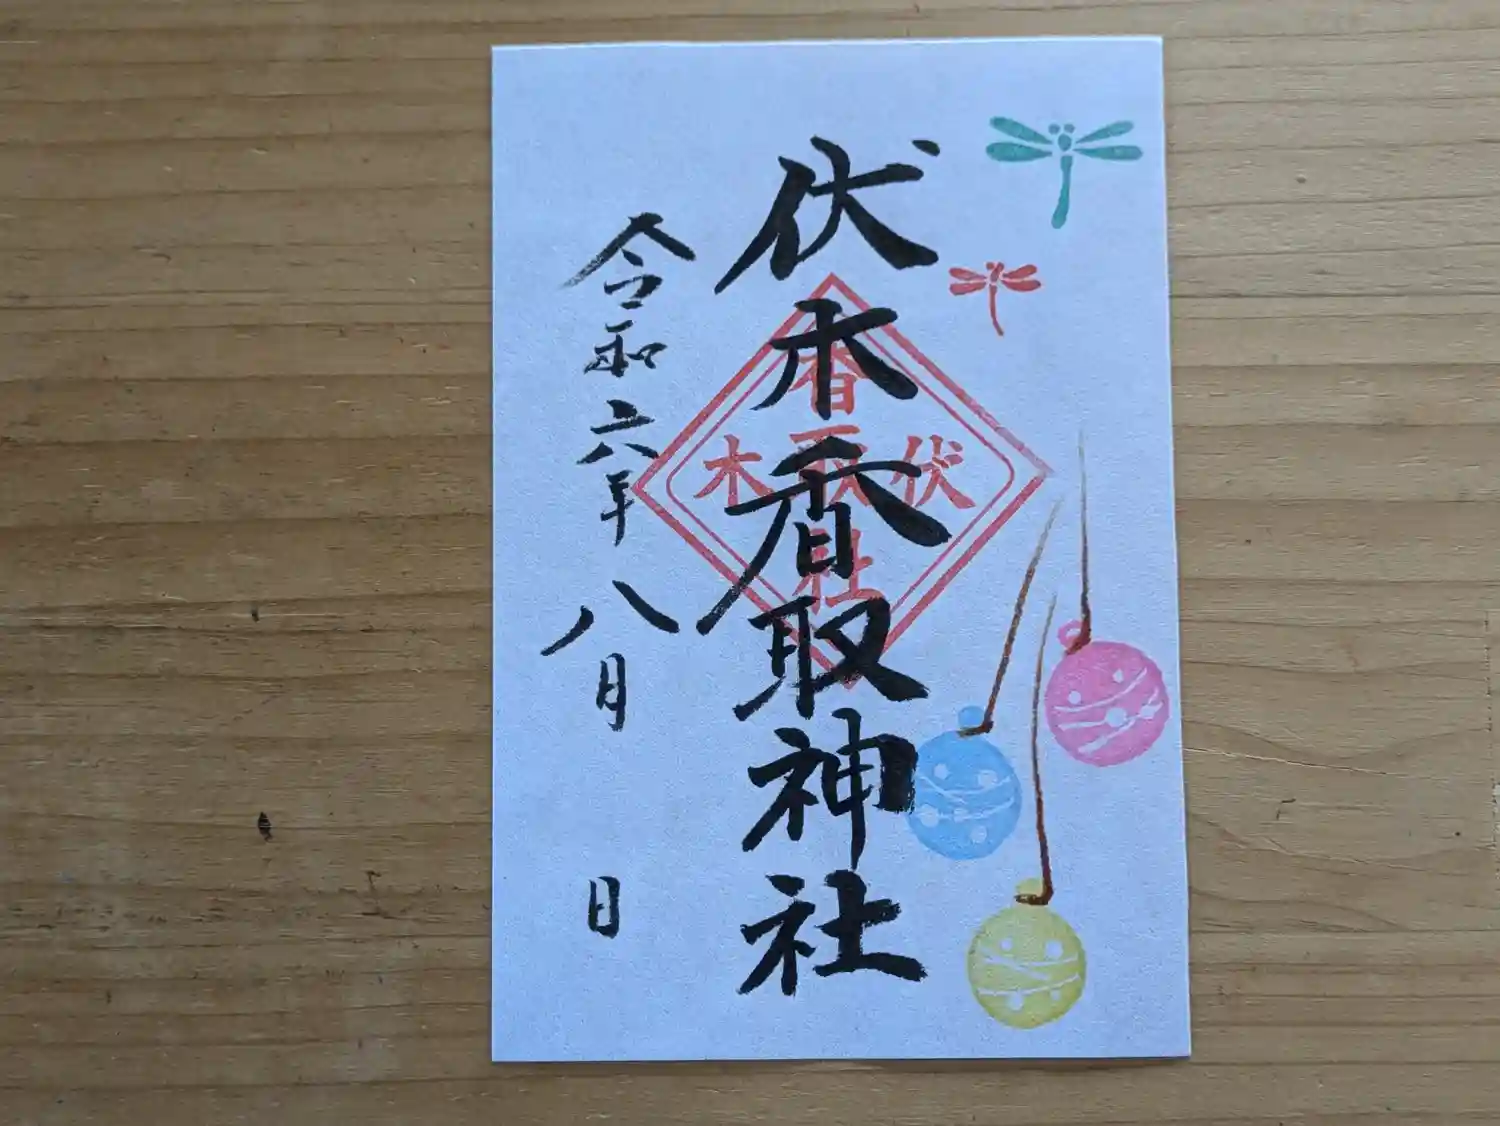 伏木香取神社
令和六年八月 日
伏
香取社
木